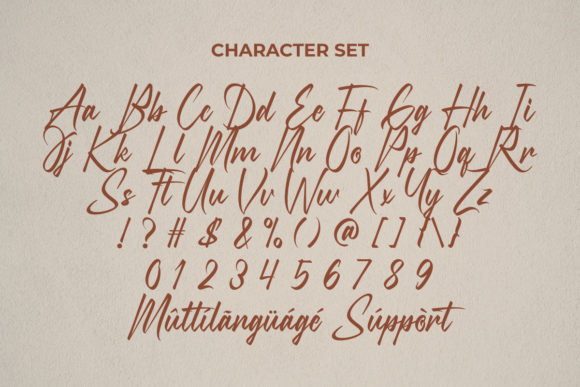 CHARACTER SET
Aa Bb Cc Dd Ee Ff Gg Hh Ii
Jj Kk Ll Mm Nn Oo Pp Qq Rr
Ss Tt Uu Vv Ww Xx Yy Zz
! ? # $ & % ( ) @ [ ] { \ }
0 1 2 3 4 5 6 7 8 9
Mûltílãngüágé Súppòrt